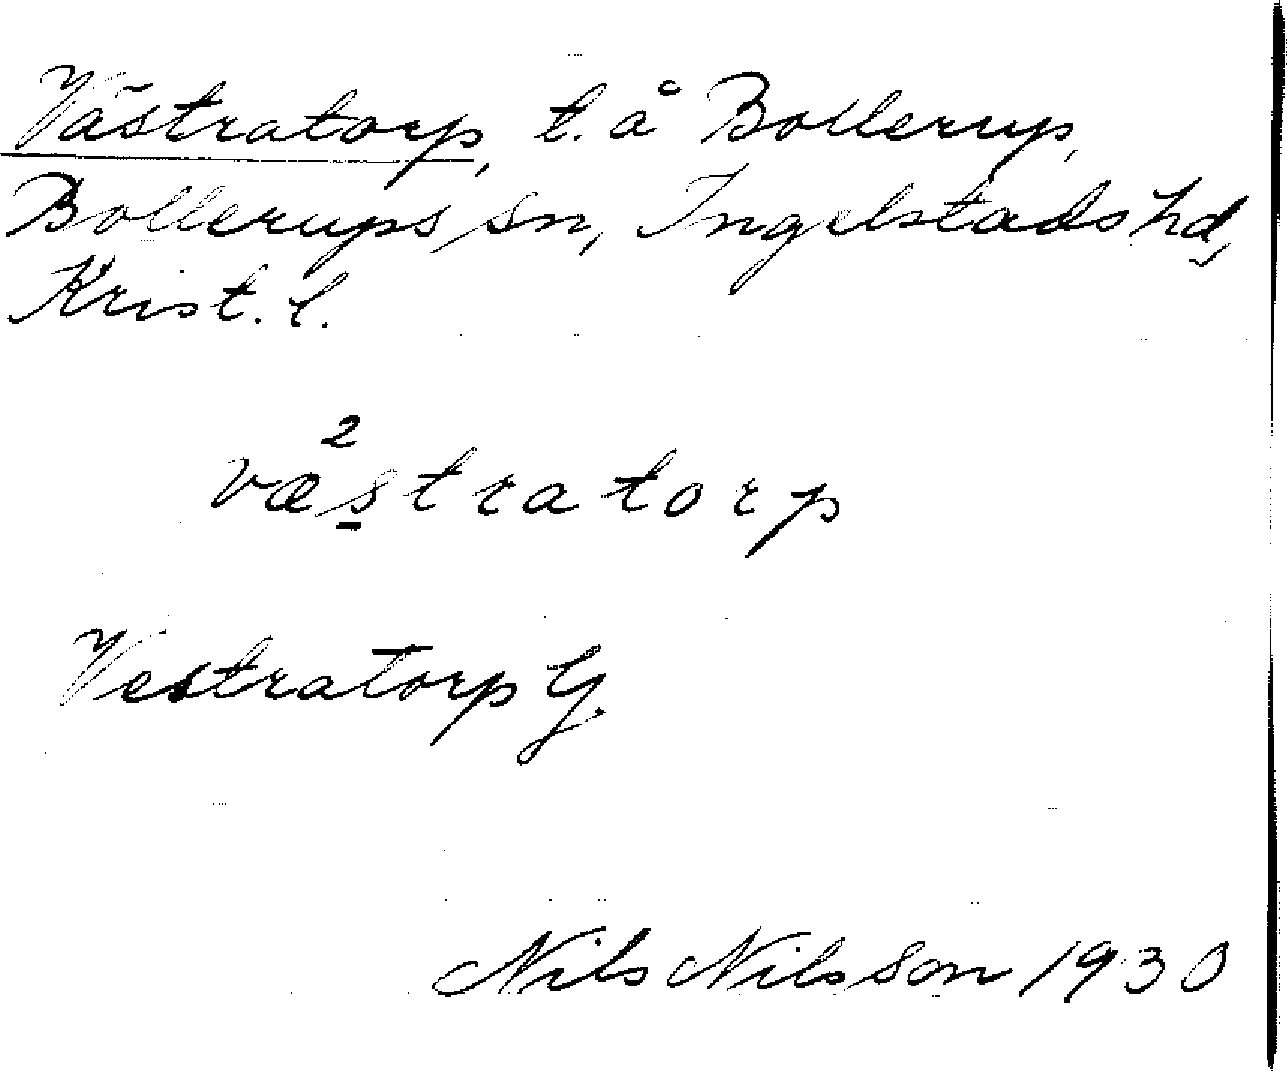 Västratorp, t. å Bollerup,
Bollerups sn, Ingelstads hd,
Krist. l.
2
væstratorp
Vestratorp G.
Nils Nilsson 1930